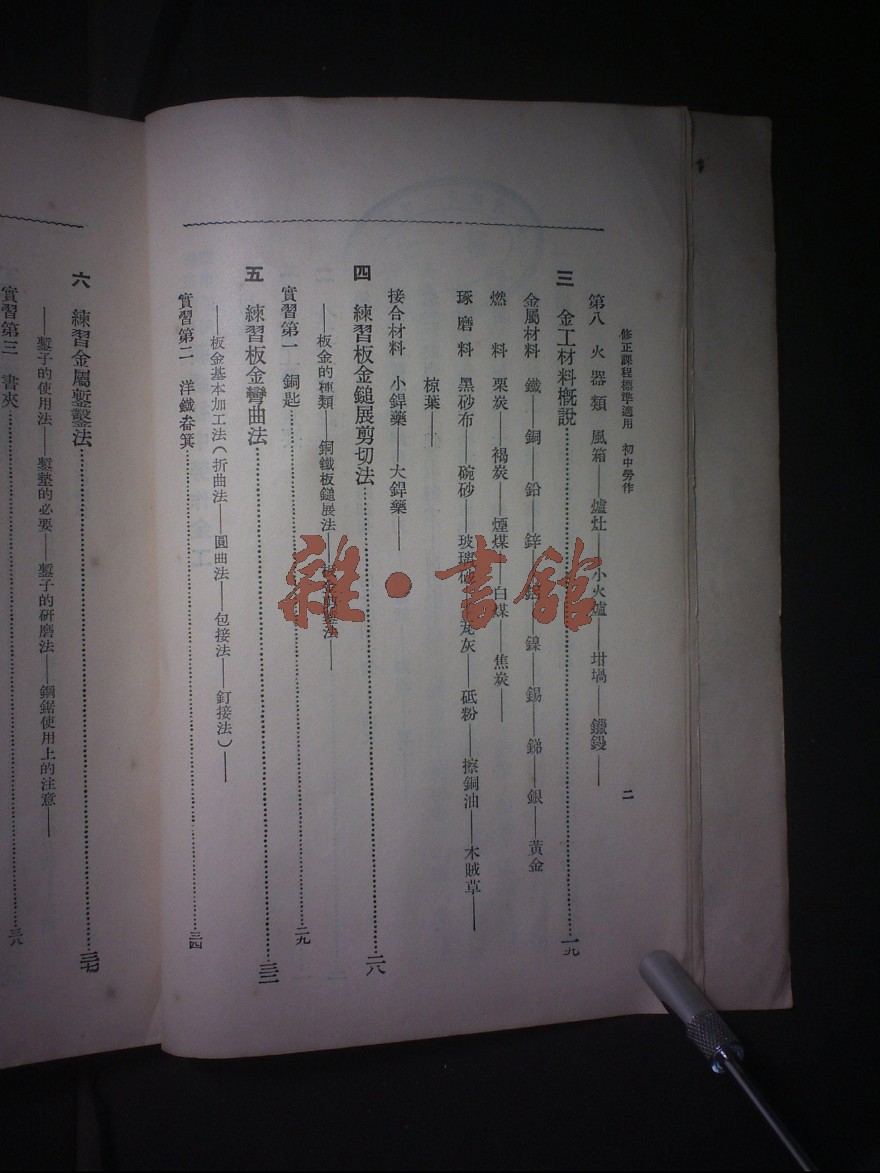 修正課程標準適用 初中勞作
二
第八 火器類 風箱——爐灶——小火爐——坩堝——鑞鏝——
三 金工材料概說 一九
金屬材料 鐵——銅——鉛——鋅——鎳——錫——銻——銀——黃金
燃料 栗炭——褐炭——煙煤——白煤——焦炭——
琢磨料 黑砂布——碗砂——玻璃砂——瓦灰——砥粉——擦銅油——木賊草——
椋葉——
接合材料 小銲藥——大銲藥——
四 練習板金鎚展剪切法 二八
——板金的種類——銅鐵板鎚展法——
實習第一 銅匙 二九
五 練習板金彎曲法 三二
——板金基本加工法(折曲法——圓曲法——包接法——釘接法)——
實習第二 洋鐵畚箕 三四
六 練習金屬鏨鑿法 三七
——鏨子的使用法——鏨墊的必要——鏨子的研磨法——鋼鋸使用上的注意——
實習第三 書夾 三八
雜·書館